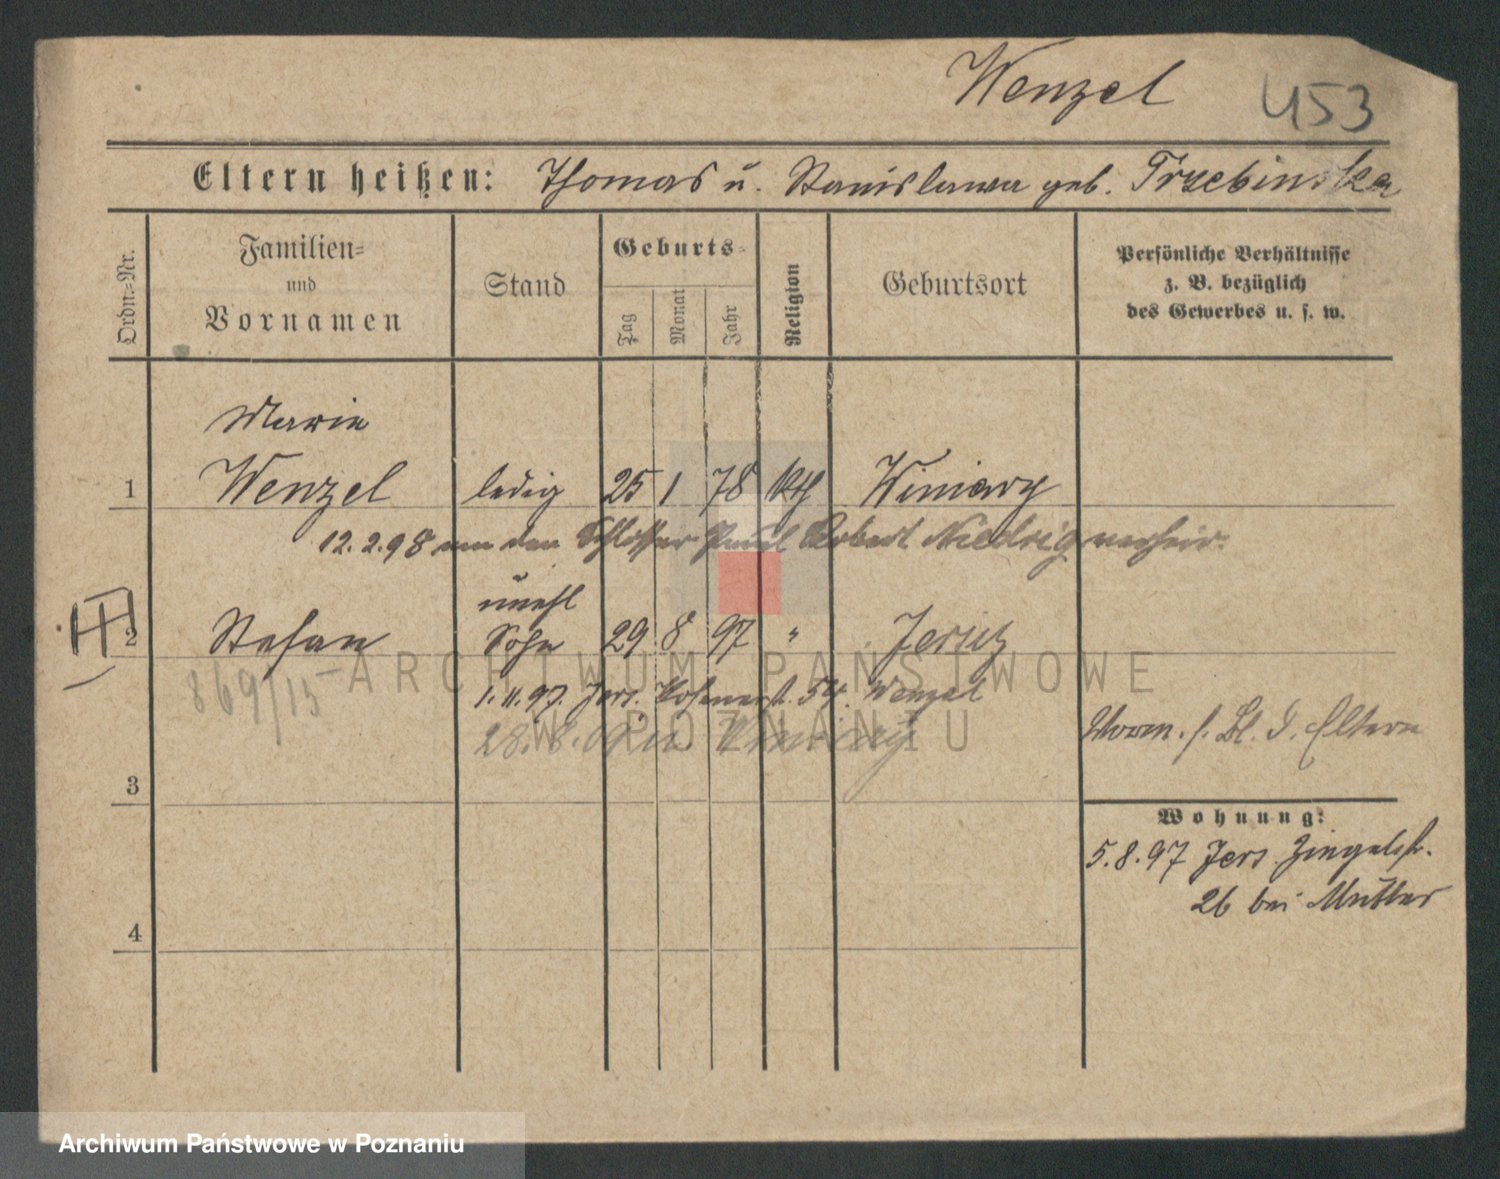 Wenzel 453
Eltern heißen: Thomas u. Stanislawa geb. Trzebinska
Ordn.=Nr.
Familien=
und
Vornamen
Stand
Geburts=
Tag
Monat
Jahr
Religion
Geburtsort
Persönliche Verhältnisse
z. B. bezüglich
des Gewerbes u. s. w.
Marie
1 Wenzel ledig 25 1 78 kth Winiary
12.2.98 an den Schlosser Paul Robert Niedrig verheir.
unehl
2 Stefan Sohn 29 8 97 " Jersitz
869/15
1.11.97. Jers. Posenerst. 54. Wenzel
28.8. Winiary
Vorm. s. Bl. d. Eltern
3
Wohnung:
5.8.97 Jers. Ziegelstr.
26 bei Mutter
4
ARCHIWUM PAŃSTWOWE
W POZNANIU
Archiwum Państwowe w Poznaniu